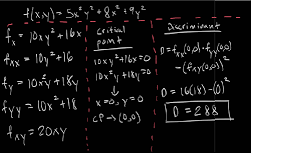 f(x,y) = 5x²y² + 8x² + 9y²
fx = 10xy² + 16x
fxx = 10y² + 16
fy = 10x²y + 18y
fyy = 10x² + 18
fxy = 20xy
Critical
point
10xy² + 16x = 0
10x²y + 18y = 0
↓
x = 0, y = 0
CP → (0,0)
Discriminant
D = fxx(0,0) · fyy(0,0)
- (fxy(0,0))²
D = 16(18) - (0)²
D = 288